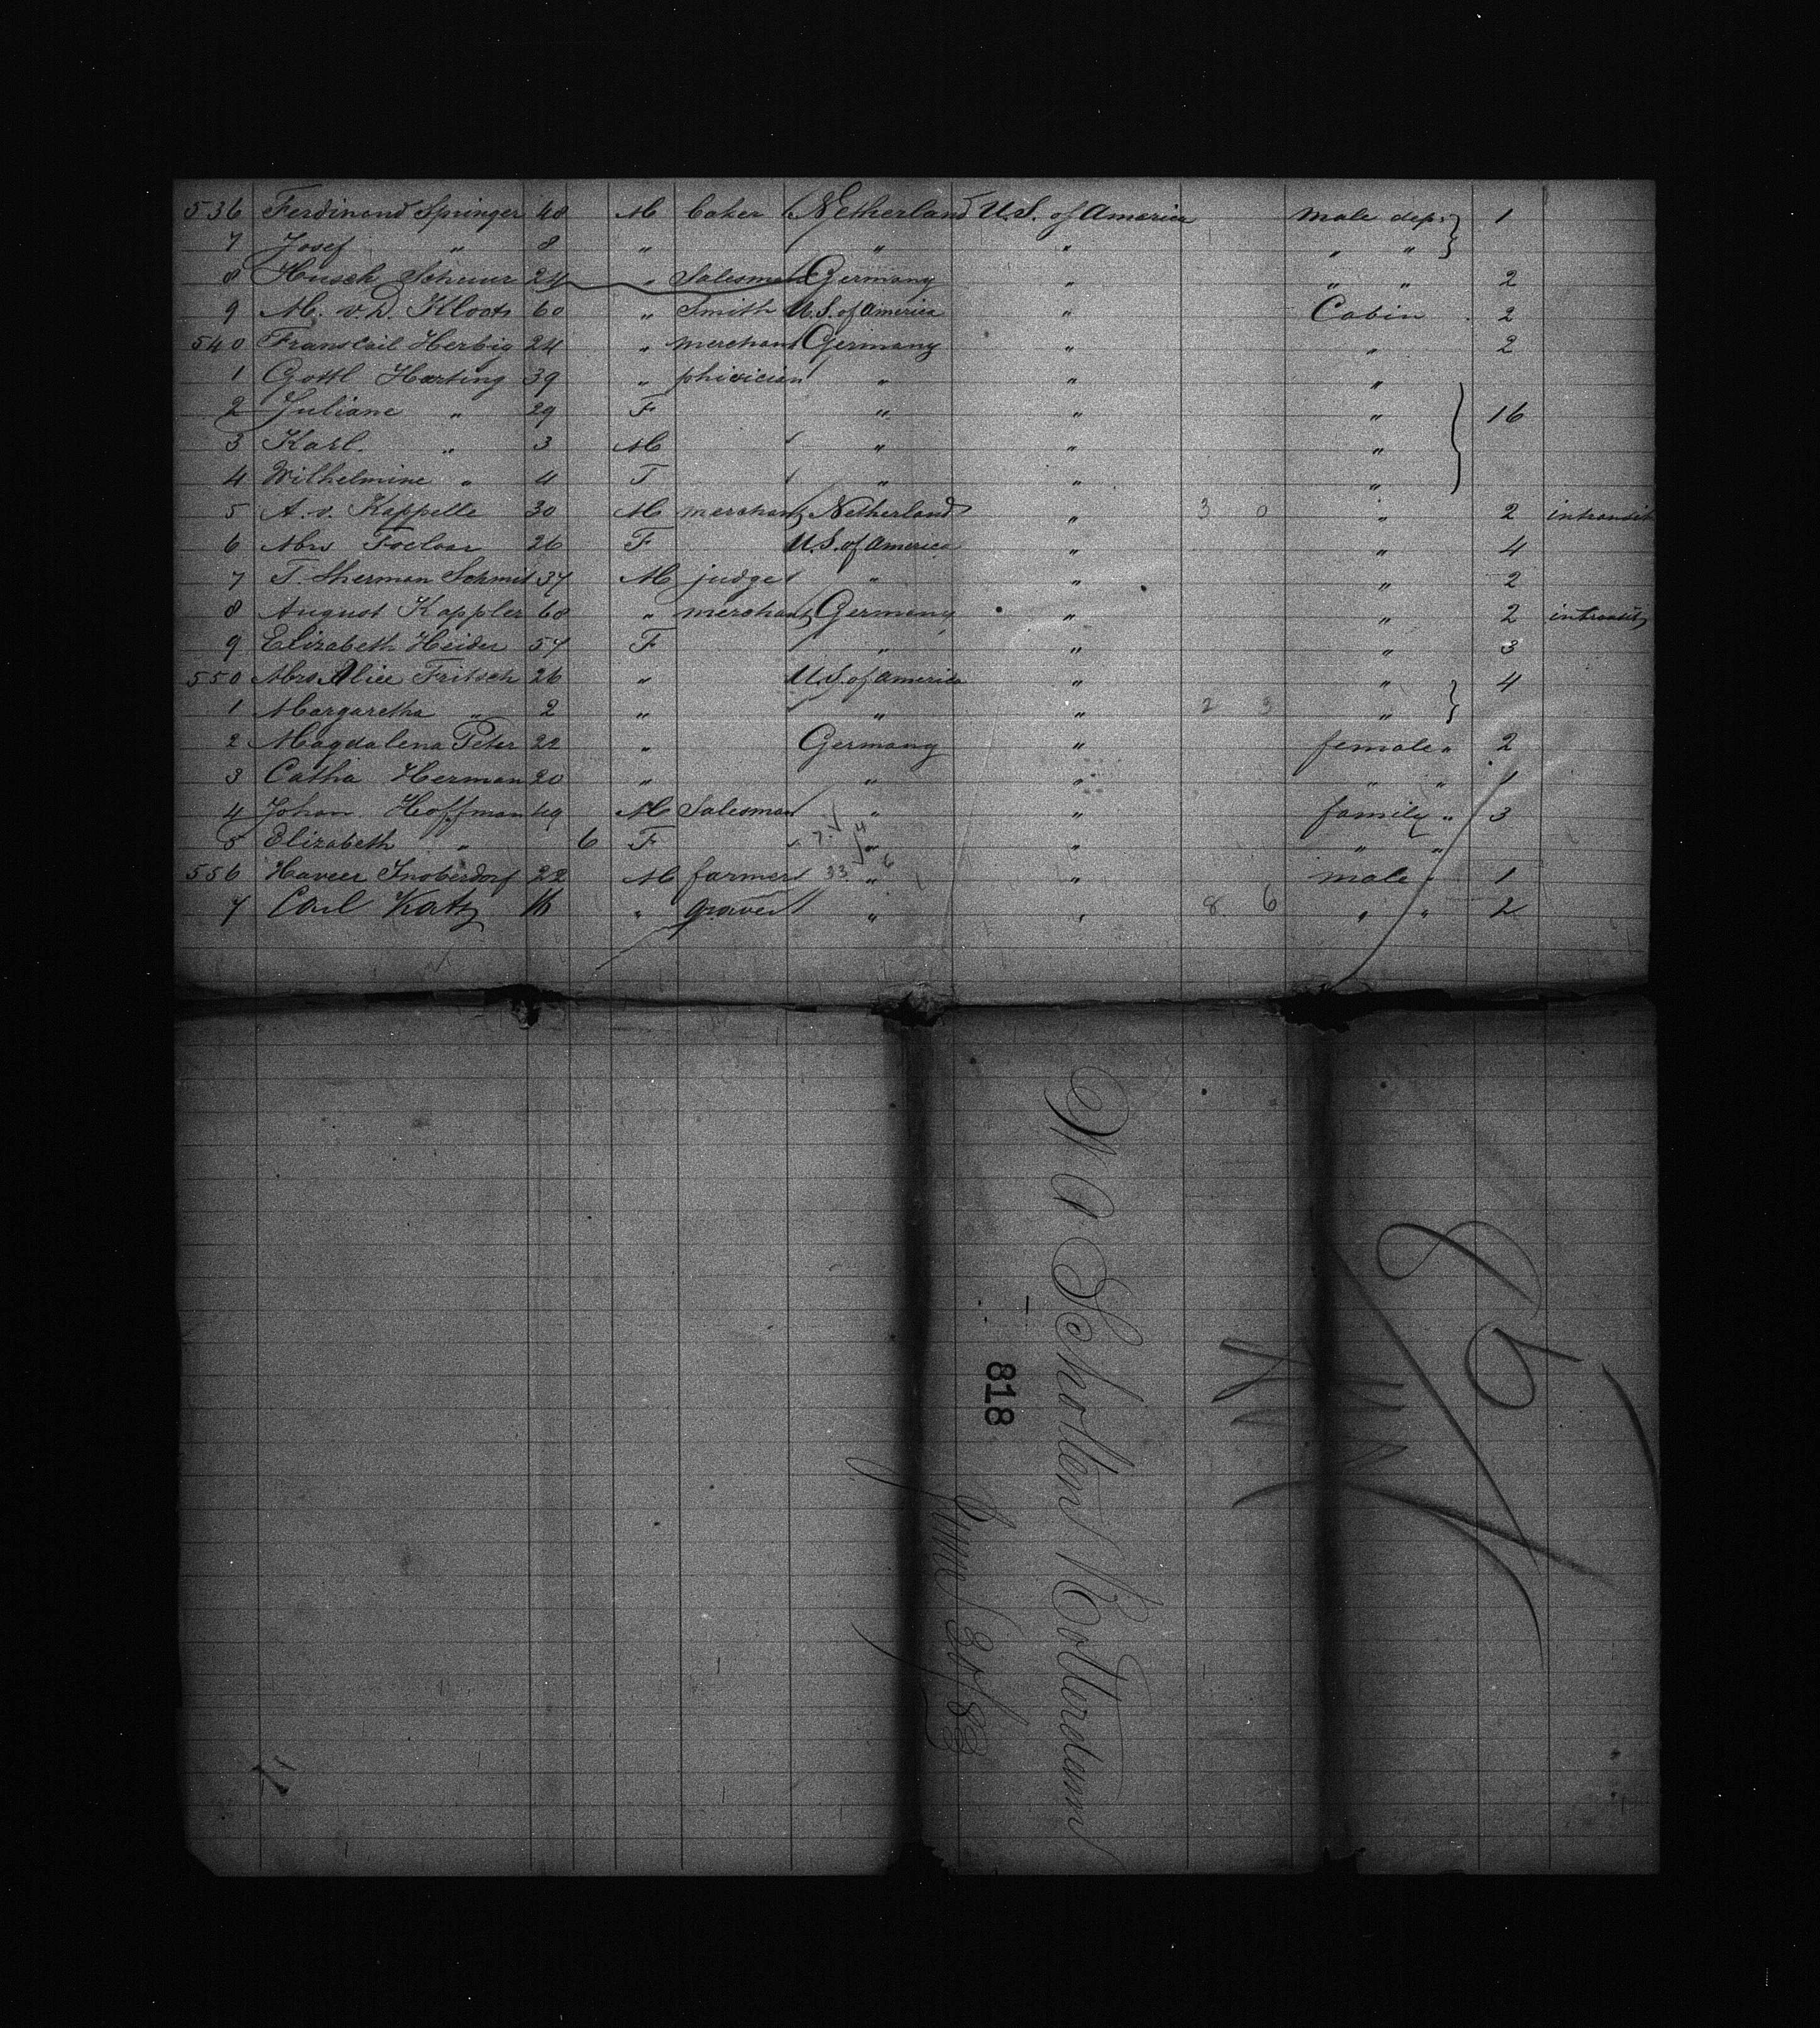 536 Ferdinand Springer 48 M baker Netherland U.S. of America male dep. 1
7 Josef " 8 " " " " "
8 Husch Scheuer 24 " Salesman Germany " " " 2
9 M. v. D. Kloots 60 " Smith U.S. of America " Cabin 2
540 Herbig 24 " merchant Germany " " 2
1 Gottl Harting 39 " phisicien " " "
2 Juliane " 29 F " " " 16
3 Karl. " 3 M " " "
4 Wilhelmine " 4 F " " "
5 A. v. Kappelle 30 M merchant Netherland " 3 0 " 2 intransit
6 Mrs 26 F U.S. of America " " 4
7 T. Sherman Schmit 37 M judge " " " 2
8 August Kappler 68 " merchant Germany " " 2 intransit
9 Elizabeth Heider 57 F " " " 3
550 Mrs Alice Fritsch 26 " U.S. of America " " 4
1 Margaretha " 2 " " " 2 3 "
2 Magdalena Peter 22 " Germany " female " 2
3 Catha Herman 20 " " " " " 1
4 Johan. Hoffman 49 M Salesman " " family " 3
5 Elizabeth " 6 F " " " "
556 Haveer Inoberdorf 22 M farmer " " male " 1
7 Carl Katz 16 " graver " " 8 6 " " 2
W A Scholten Rotterdam
818
June 20/83